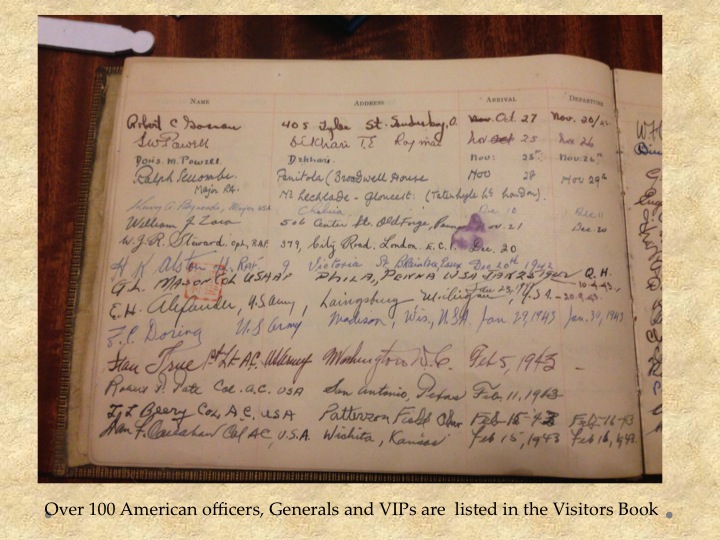 NAME ADDRESS ARRIVAL DEPARTURE
Robert C 405 Tyler St. Sandusky, O. Nov. Oct. 27 Nov. 20/42
S.W. Powell Dikhari T.E. Nov Oct 25 Nov 26
Doris. M. Powell Dikhari. Nov: 25th. Nov: 26th
Ralph Seccombe. (Broadwell House Nov 28 Nov 29th
Major RA. Nr Lechlade - Gloucest: London).
Major USA Dec 10 Dec 11
William J Zara 506 Center St. Old Forge, Penna Nov. 21 Dec 20
W.J.R. Steward. Cpl, 379, City Road, London. E.C.1. Dec. 20
H K Alston 9 Victoria St. Dec 20th 1942
G.L. Mason Col USAAF PHILA, PENNA USA JAN 23 Q.H.
Jan 23, 10-4-43.
E.H. Alexander, U.S Army, Laingsburg Michigan, U.S.A. - 20.4.43.
F.C. Doring U.S Army Madison, Wis., USA. Jan 29, 1943 Jan. 30, 1943
True 1st Lt. A.C. US Army Washington D.C. Feb 5, 1943 -
Robert V. Tate Col. A.C. USA San Antonio, Texas Feb 11, 1943
Geery Col, A.C, USA Patterson Field Ohio Feb-15-43 Feb-16-43
Callahan Col AC, U.S.A. Wichita, Kansas Feb 15, 1943 Feb 16, 1943.
Over 100 American officers, Generals and VIPs are listed in the Visitors Book